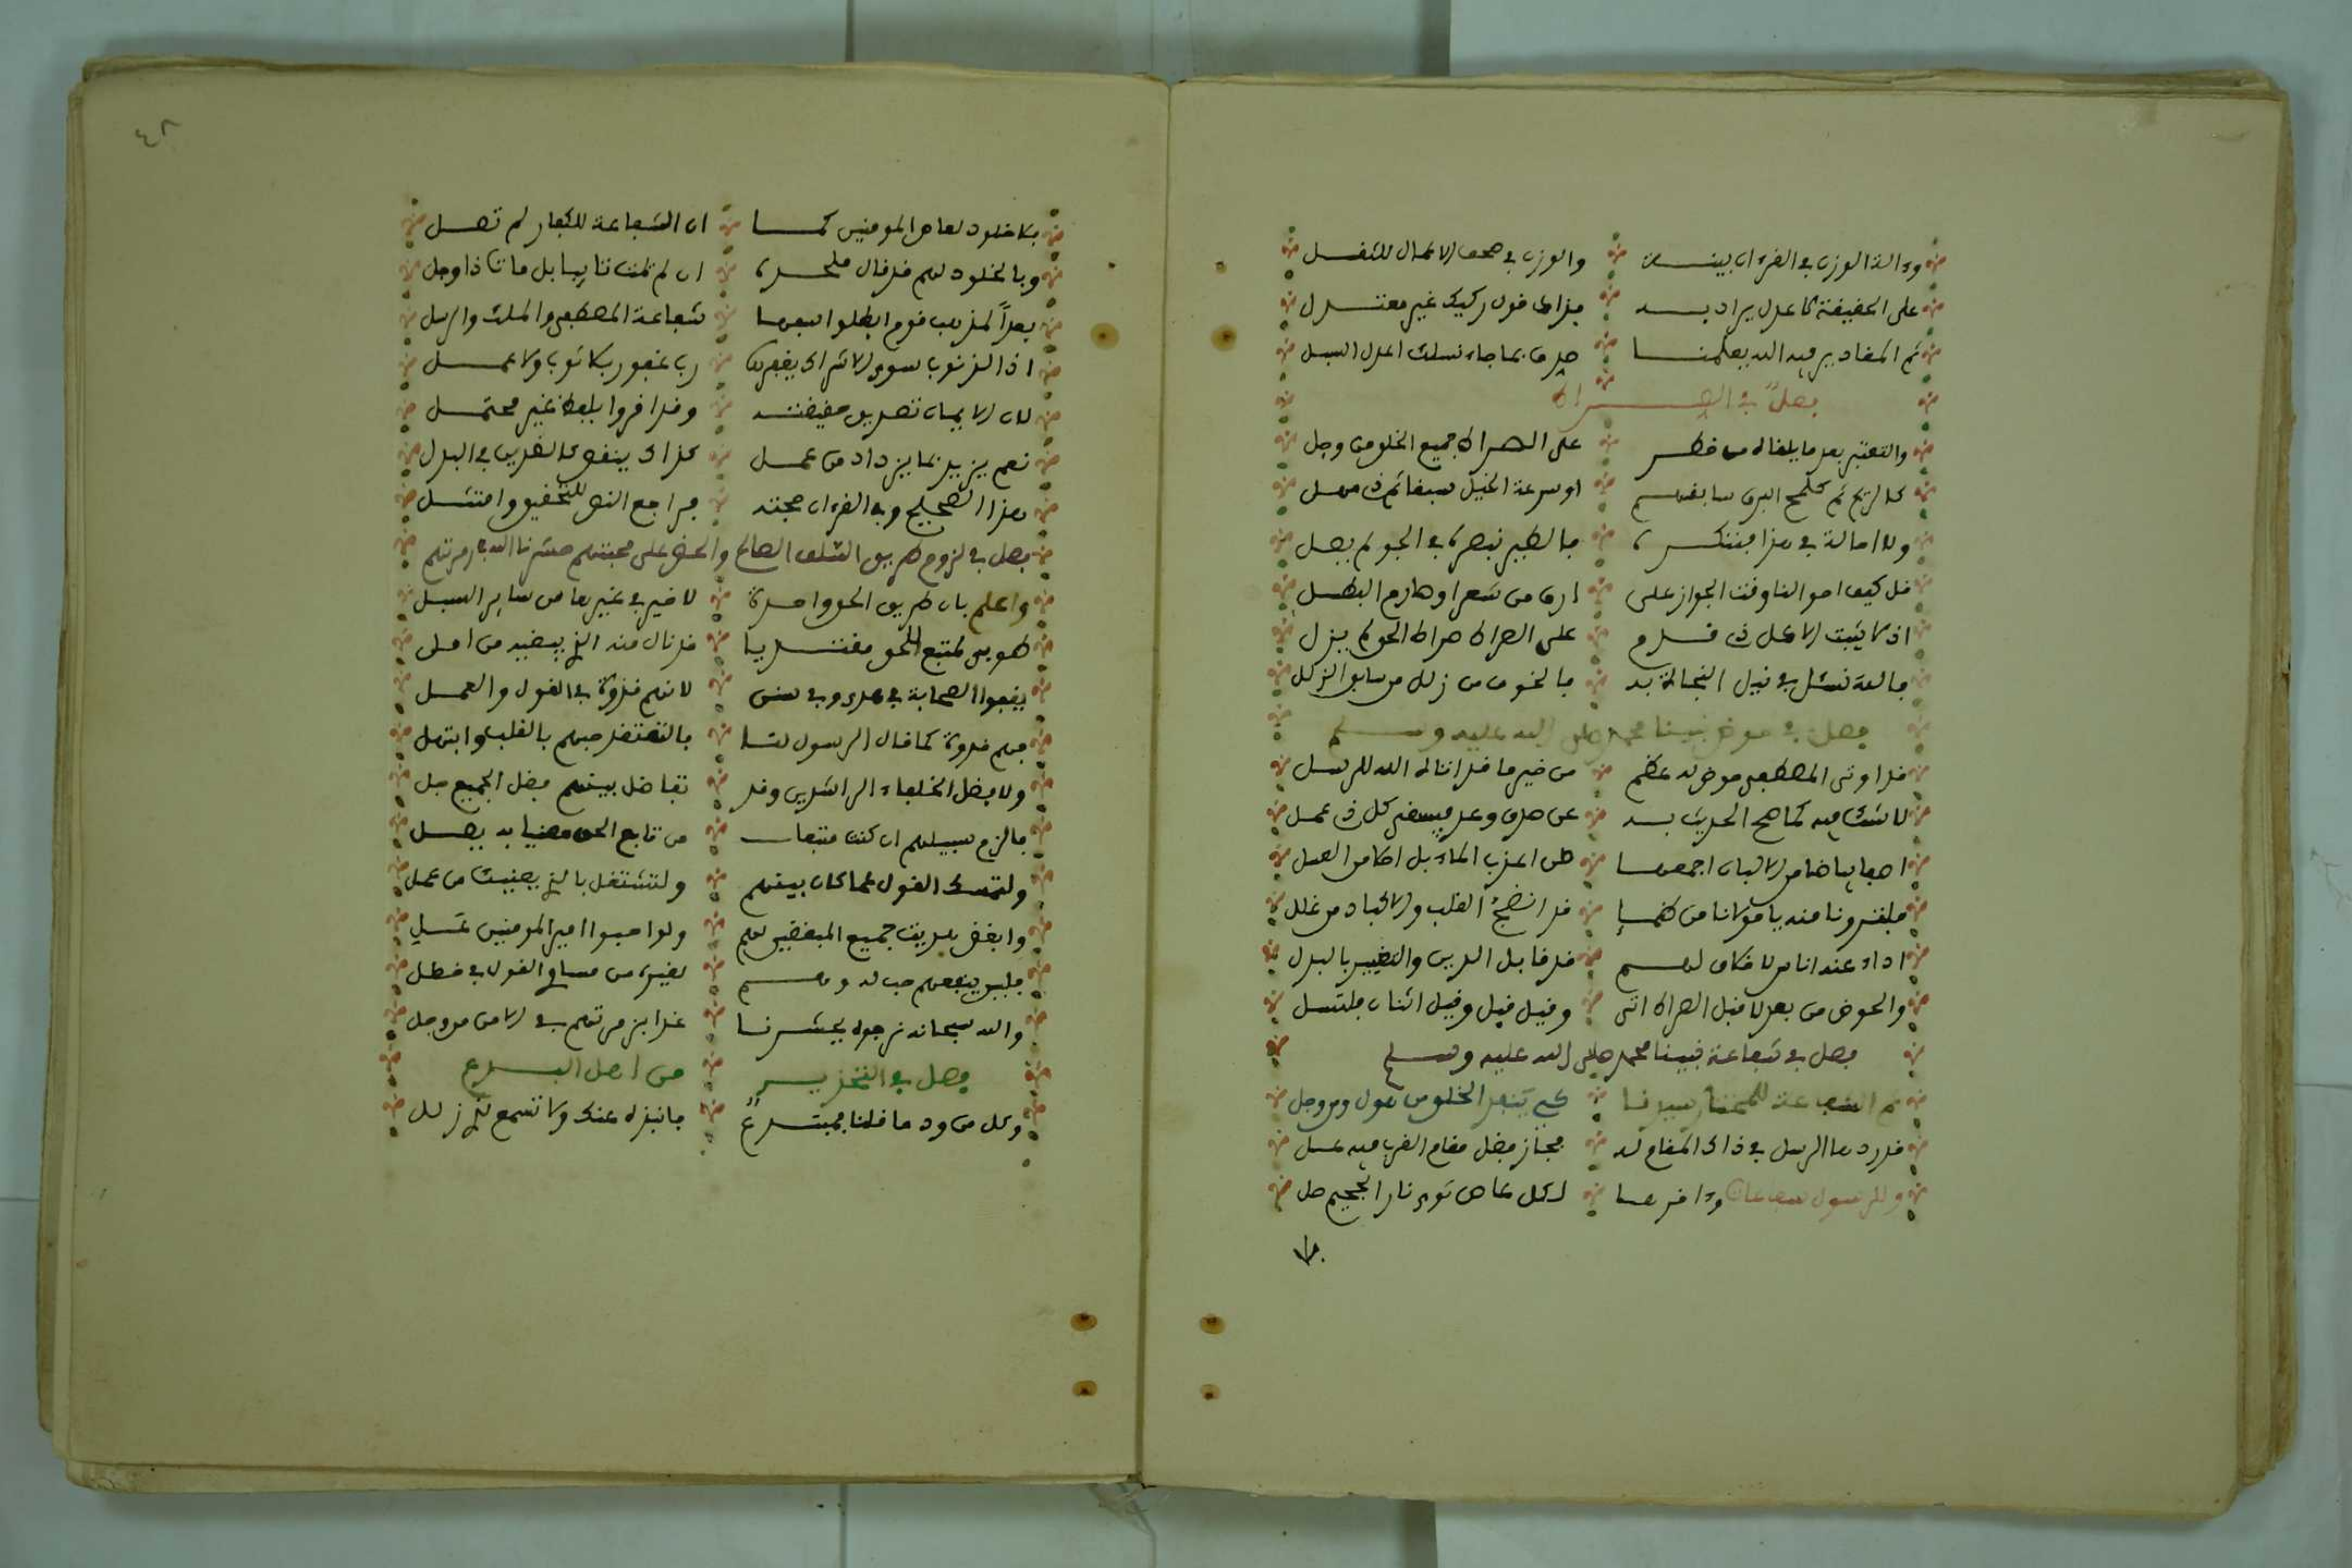 وءالة الوزن في القرءان بينة والوزن في صحف الاعمال للثقل
على الحقيقة لا عدل يراد به هذاك قول ركيك غير معتدل
ثم المقادير فيه الله يعلمها صدق بما جاء تسلك اعدل السبل
فصل في الصراط
والتعتبر بعد ما يلقاه من خطر على الصراط جميع الخلق من وجل
كالريح ثم كلمح البرق سابقهم او سرعة الخيل سبقا ثم ذي مهل
ولا احالة في هذا فتنكره فالطير تبصره في الجو لم يصل
قل كيف احوالنا وقت الجواز على ارق من شعر او صارم البطل
اذ لا يثبت الا كل ذي قدم على الصراط صراط الحق لم يزل
فالله نسئل في نيل النجاة به بالخوف من زلل من سابق الزلل
فصل في حوض نبينا محمد صلى الله عليه وسلم
قد اوتي المصطفى حوض له عظم من خير ما قد اتاه الله للرسل
لا شك فيه كما صح الحديث به عن صدق وعد فيسقى كل ذي عمل
اصفى بياضا من الالبان اجمعها طن اعذب الماء بل احلى من العسل
فلتسقونا منه يا مولانا من ظمإ قد انضج القلب والاكباد من غلل
اذاد عنه اناس لا خلاق لهم قد قابل الدين والتغيير بالبدل
والحوض من بعد لا قبل الصراط اتى وقيل قبل وقيل اثنان فلتسل
فصل في شفاعة نبينا محمد صلى الله عليه وسلم
ثم الشفاعة للمختار سيدنا كي ينقذ الخلق من هول ومن وجل
قد ردها الرسل في ذاك المقام له فحاز فضل مقام القرب فيه عسل
وللرسول شفاعات وءاخرها لكل عاص ثوى نار الجحيم صل
فلا خلود لعاص المؤمنين كما ان الشفاعة للكفار لم تصل
وبالخلود لهم قد قال ملحدة ان لم تمت تايبا بل مات ذا وجل
بعداً لمذهب قوم ابطلوا سفها شفاعة المصطفى والملك والرسل
اذ الذنوب سوى الاشراك يغفرها رب غفور بلا توب ولا عمل
لان الايمان تصديق حقيقته وقد اقروا بلفظ غير محتمل
نعم يزيد بما يزداد من عمل كذاك ينقص كالقدين في البدل
هذا الصحيح وفي القرءان حجته فراجع النص للتحقيق وامتثل
فصل في لزوم طريق السلف الصالح والحض على محبتهم حشرنا الله في زمرتهم
واعلم بان طريق الحق واحدة لا خير في غيرها من ساير السبل
طوبى لمتبع للحق مقتديا قد نال منه الذي يبغيه من امل
يقفوا الصحابة في هدى وفي سنن لانهم قدوة في القول والعمل
فهم قدوة كما قال الرسول لنا فالتعتقد حبهم بالقلب وابتهل
ولا فضل الخلفاء الراشدين وقد تفاضل بينهم فضل الجميع جل
فالزم سبيلهم ان كنت متبعا من تابع الحق مقتفيا به يصل
ولتمسك القول عما كان بينهم ولتشتغل بالذي يعنيك من عمل
وابغض بدينك جميع المبغضين لهم ولو احبوا امير المؤمنين علي
فليس ينفعهم حب له ولهم لغيره من مساوي القول في خطل
والله سبحانه نرجوه يحشرنا غدا بزمرتهم في الامن من وجل
فصل في التحذير من اهل البدع
وكل من ود ما قلنا فمبتدع فانبذه عنك ولا تسمع لذي زلل